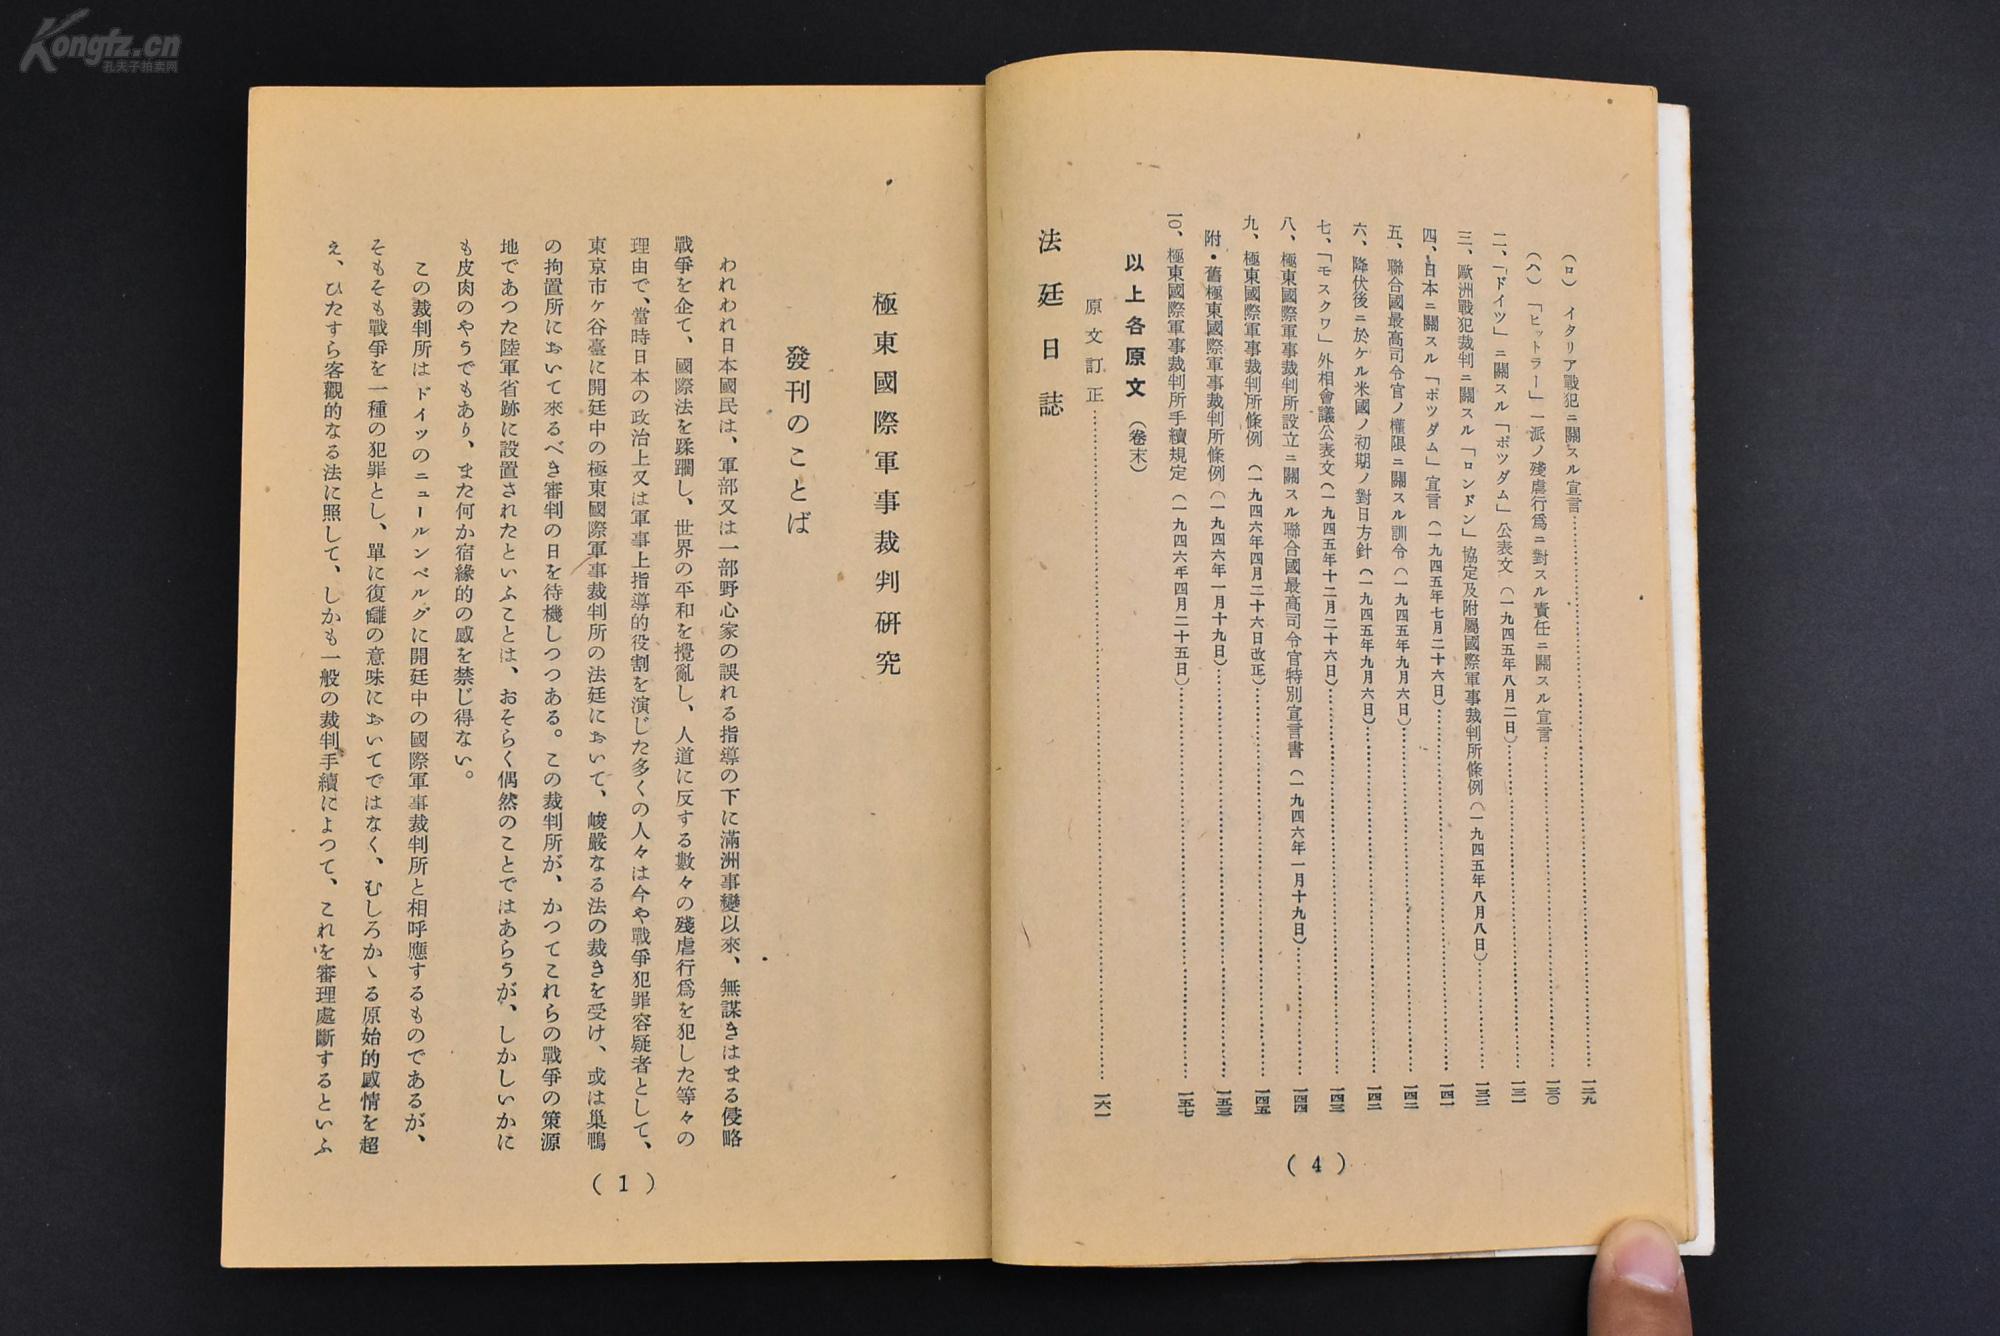 Kongfz.cn
孔夫子拍卖网
(ロ) イタリア戰犯ニ關スル宣言……一二九
(ハ) 「ヒットラー」一派ノ殘虐行爲ニ對スル責任ニ關スル宣言……一三〇
二、「ドイツ」ニ關スル「ポツダム」公表文(一九四五年八月二日)……一三一
三、歐洲戰犯裁判ニ關スル「ロンドン」協定及附屬國際軍事裁判所條例(一九四五年八月八日)……一三二
四、日本ニ關スル「ポツダム」宣言(一九四五年七月二十六日)……一四一
五、聯合國最高司令官ノ權限ニ關スル訓令(一九四五年九月六日)……一四二
六、降伏後ニ於ケル米國ノ初期ノ對日方針(一九四五年九月六日)……一四二
七、「モスクワ」外相會議公表文(一九四五年十二月二十六日)……一四三
八、極東國際軍事裁判所設立ニ關スル聯合國最高司令官特別宣言書(一九四六年一月十九日)……一四四
九、極東國際軍事裁判所條例(一九四六年四月二十六日改正)……一四五
附・舊極東國際軍事裁判所條例(一九四六年一月十九日)……一五三
一〇、極東國際軍事裁判所手續規定(一九四六年四月二十五日)……一五七
以上各原文(卷末)
原文訂正……一六一
法廷日誌
(4)
極東國際軍事裁判研究
發刊のことば
われわれ日本國民は、軍部又は一部野心家の誤れる指導の下に滿洲事變以來、無謀きはまる侵略
戰爭を企て、國際法を蹂躙し、世界の平和を攪亂し、人道に反する數々の殘虐行爲を犯した等々の
理由で、當時日本の政治上又は軍事上指導的役割を演じた多くの人々は今や戰爭犯罪容疑者として、
東京市ケ谷臺に開廷中の極東國際軍事裁判所の法廷において、峻嚴なる法の裁きを受け、或は巢鴨
の拘置所において來るべき審判の日を待機しつつある。この裁判所が、かつてこれらの戰爭の策源
地であつた陸軍省跡に設置されたといふことは、おそらく偶然のことではあらうが、しかしいかに
も皮肉のやうでもあり、また何か宿緣的の感を禁じ得ない。
この裁判所はドイツのニュールンベルグに開廷中の國際軍事裁判所と相呼應するものであるが、
そもそも戰爭を一種の犯罪とし、單に復讎の意味においてではなく、むしろかゝる原始的感情を超
え、ひたすら客觀的なる法に照して、しかも一般の裁判手續によつて、これを審理處斷するといふ
(1)